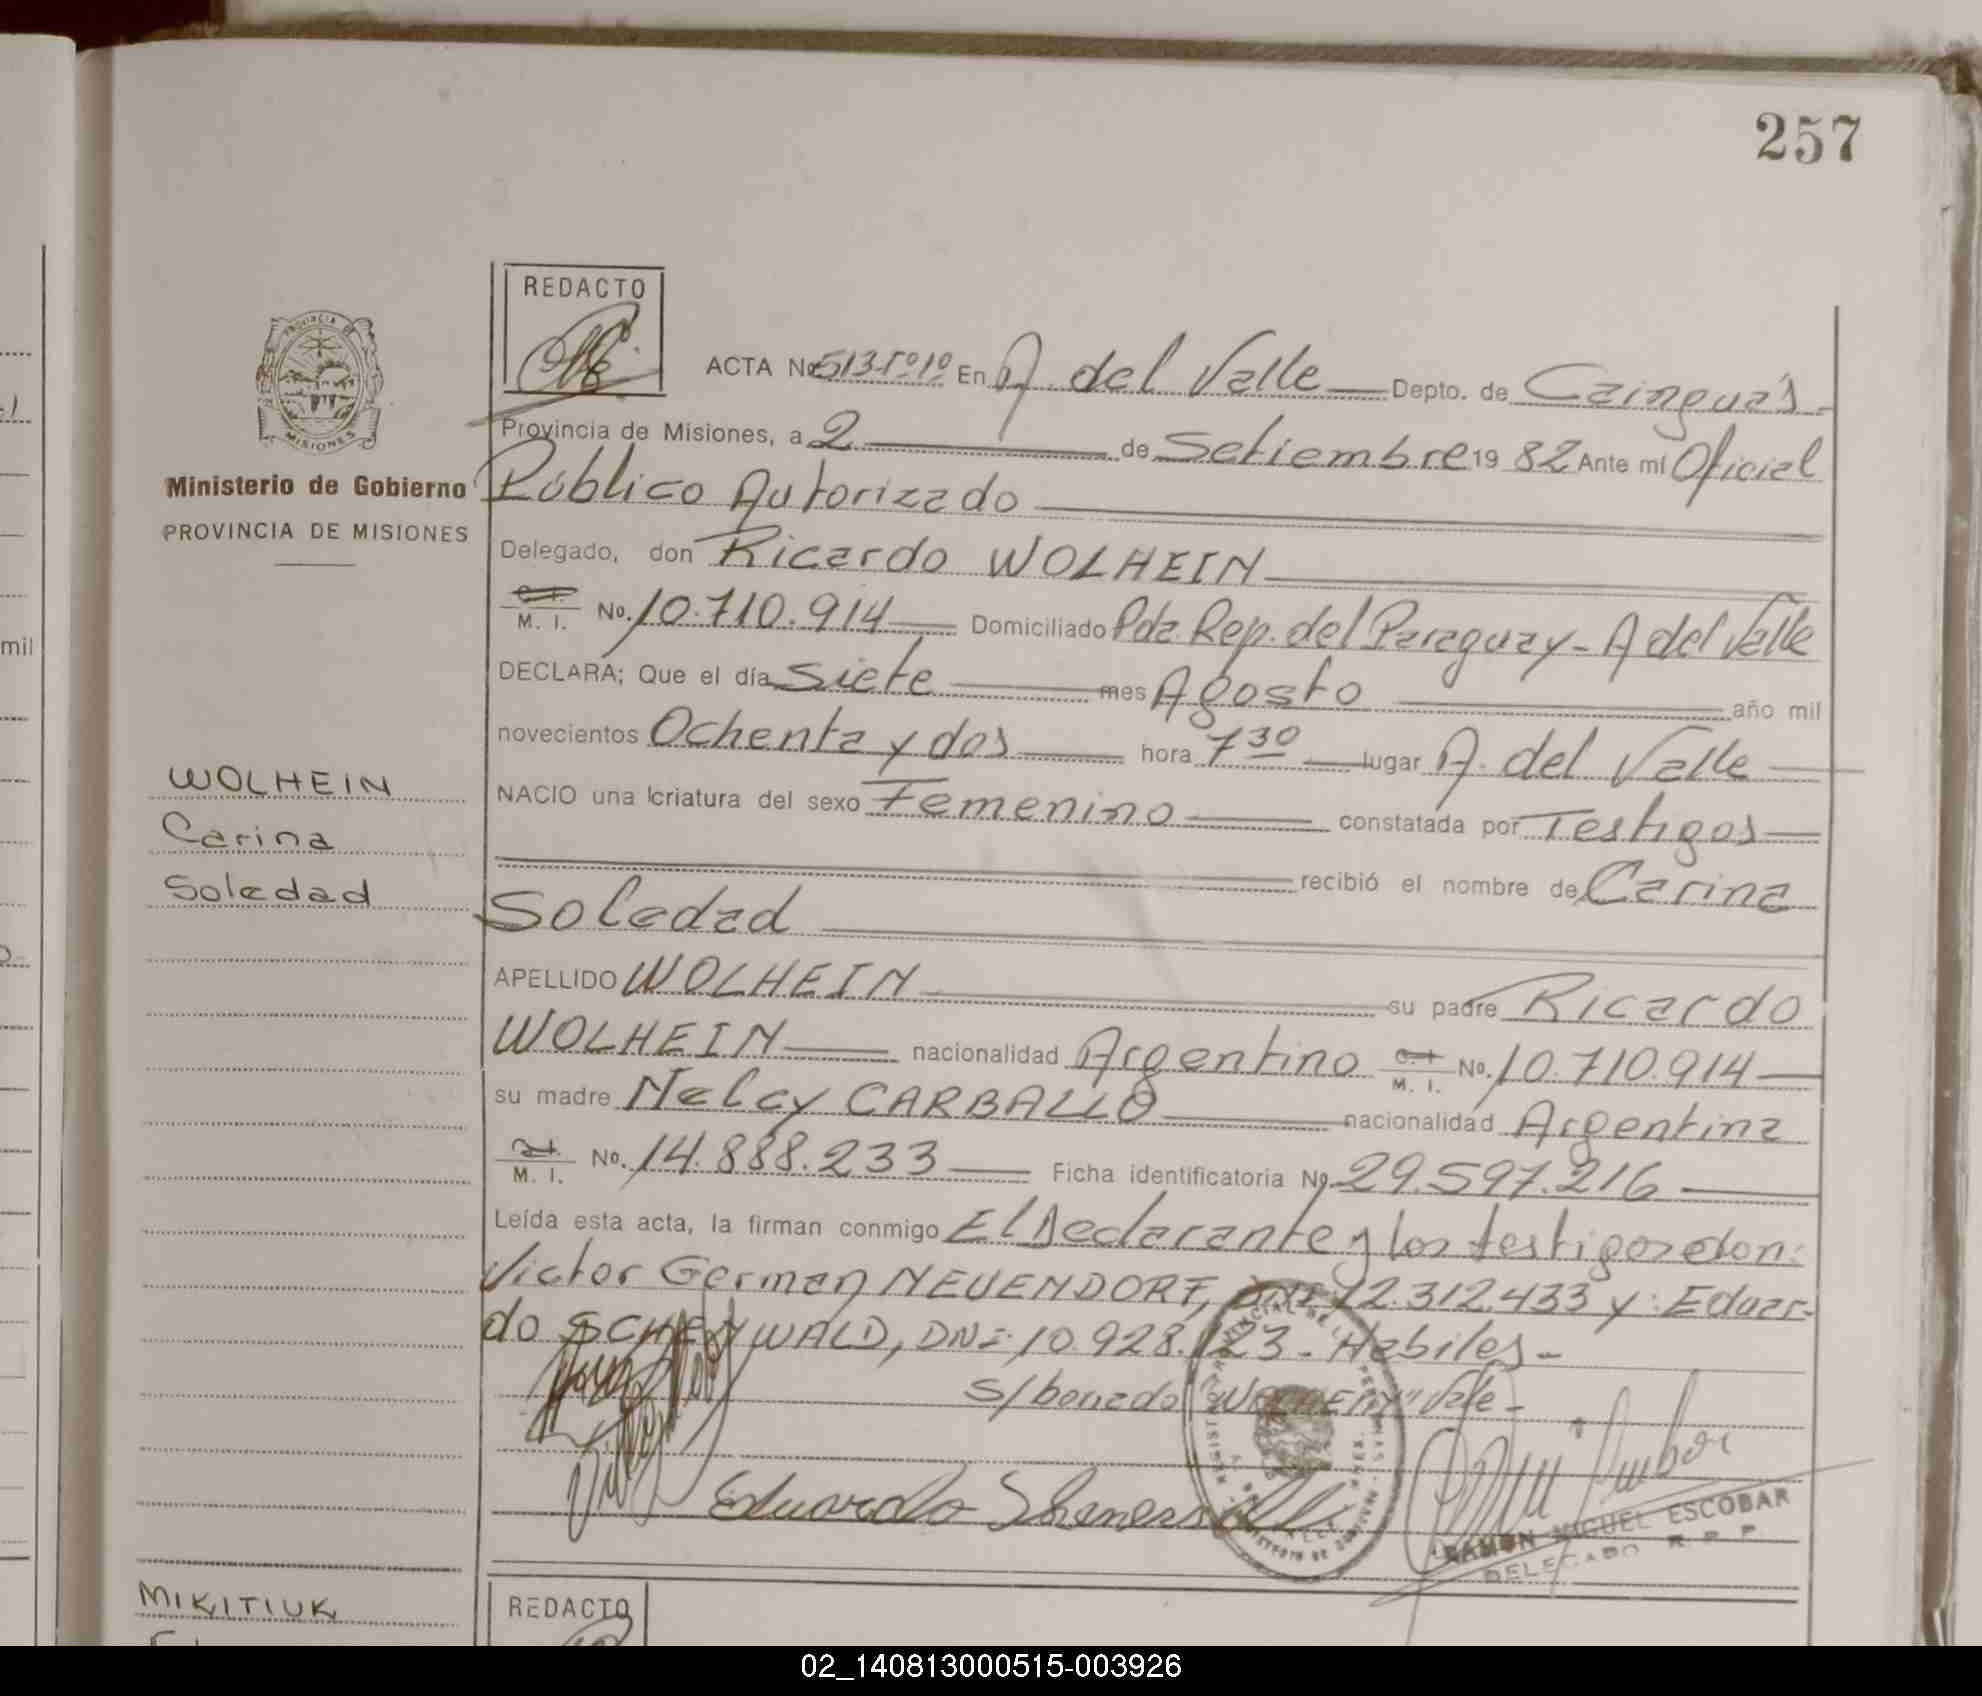 257
REDACTO
ACTA No 513-Tº1º En A. del Valle Depto. de Cainguás
Provincia de Misiones, a 2 de Setiembre 19 82 Ante mí Oficial
Público Autorizado
PROVINCIA DE
MISIONES
Ministerio de Gobierno
PROVINCIA DE MISIONES
Delegado, don Ricardo WOLHEIN
M. I. No. 10.710.914 Domiciliado Pda. Rep. del Paraguay - A del Valle
DECLARA; Que el día Siete mes Agosto año mil
novecientos Ochenta y dos hora 7 30 lugar A. del Valle
NACIO una criatura del sexo Femenino constatada por Testigos
recibió el nombre de Carina
Soledad
WOLHEIN
Carina
Soledad
APELLIDO WOLHEIN su padre Ricardo
WOLHEIN nacionalidad Argentino M. I. No. 10.710.914
su madre Nelcy CARBALLO nacionalidad Argentina
M. I. No. 14.888.233 Ficha identificatoria No 29.597.216
Leída esta acta, la firman conmigo El Declarante y los testigos don:
Victor German NEUENDORF, DNI 12.312.433 y: Eduar-
do SCHENWALD, DNI: 10.928.123 - Habiles -
S/borrado "WOLHEIN" Vale -
Eduardo
RAMON MIGUEL ESCOBAR
DELEGADO R. P. P.
MIKITIUK
REDACTO
mil
02_140813000515-003926